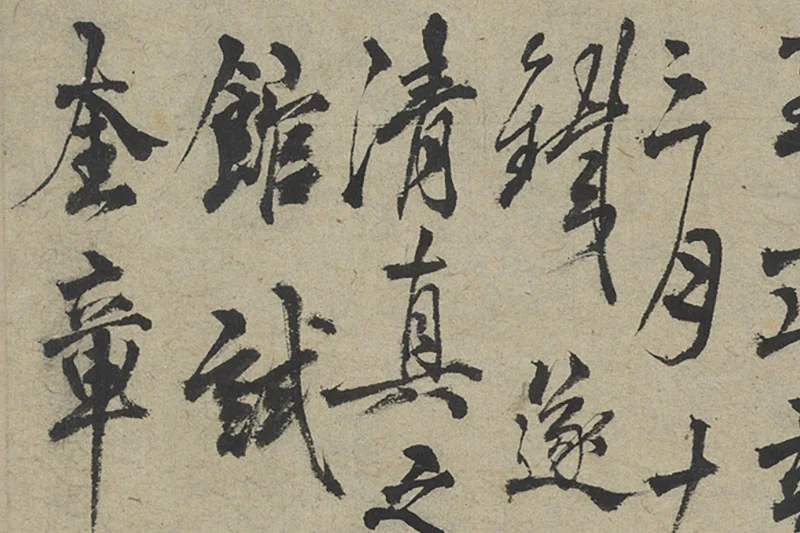 三月十
遂
清真之
館試
奎章